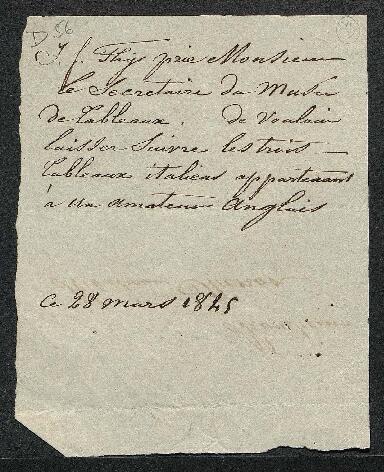 D 56
J. f. Thys prie Monsieur
le Secretaire du Musée
de tableaux. de Vouloir
laisser Suivre les trois
tableaux italiens appartenant
à un amateur Anglais
Ce 28 mars 1845